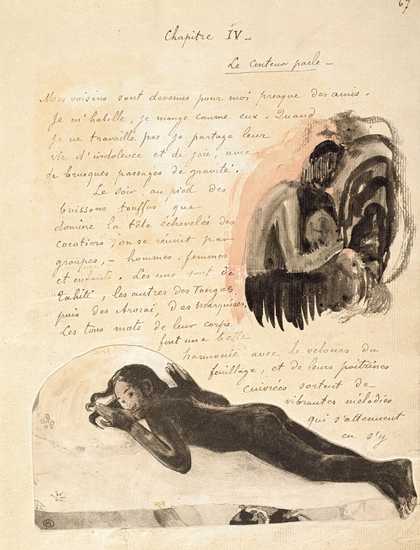 67
Chapitre IV —
Le Conteur parle —
Mes voisins sont devenus pour moi presque des amis.
Je m'habille, je mange comme eux. Quand
Je ne travaille pas je partage leur
vie d'indolence et de joie, avec
de brusques passages de gravité.
Le soir, au pied des
buissons touffus que
domine la tête échevelée des
cocotiers, on se réunit par
groupes, — hommes, femmes
et enfants. Les uns sont de
Tahiti, les autres des Tongas,
puis des Arorai, des Marquises.
Les tons mats de leur corps
font une belle
harmonie avec le velours du
feuillage, et de leurs poitrines
cuivrées sortent de
vibrantes mélodies
qui s'atténuent
en s'y